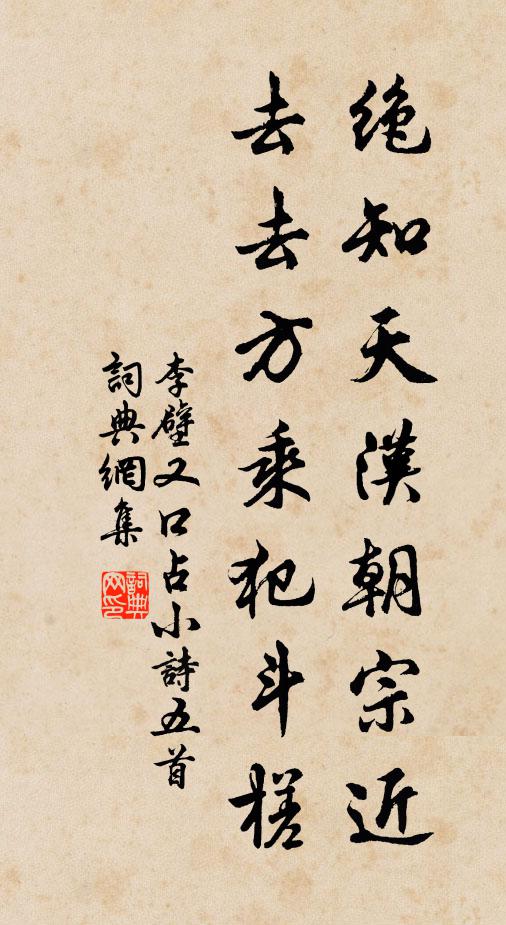 絶知天漢朝宗近
去去方乘犯斗槎
李壁又口占小詩五首
詞典網集
詞典
网印